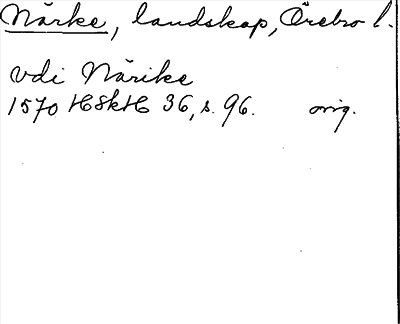 Närke, landskap, Örebro l.
vdi Närike
1570 HSkH 36, s. 96. orig.